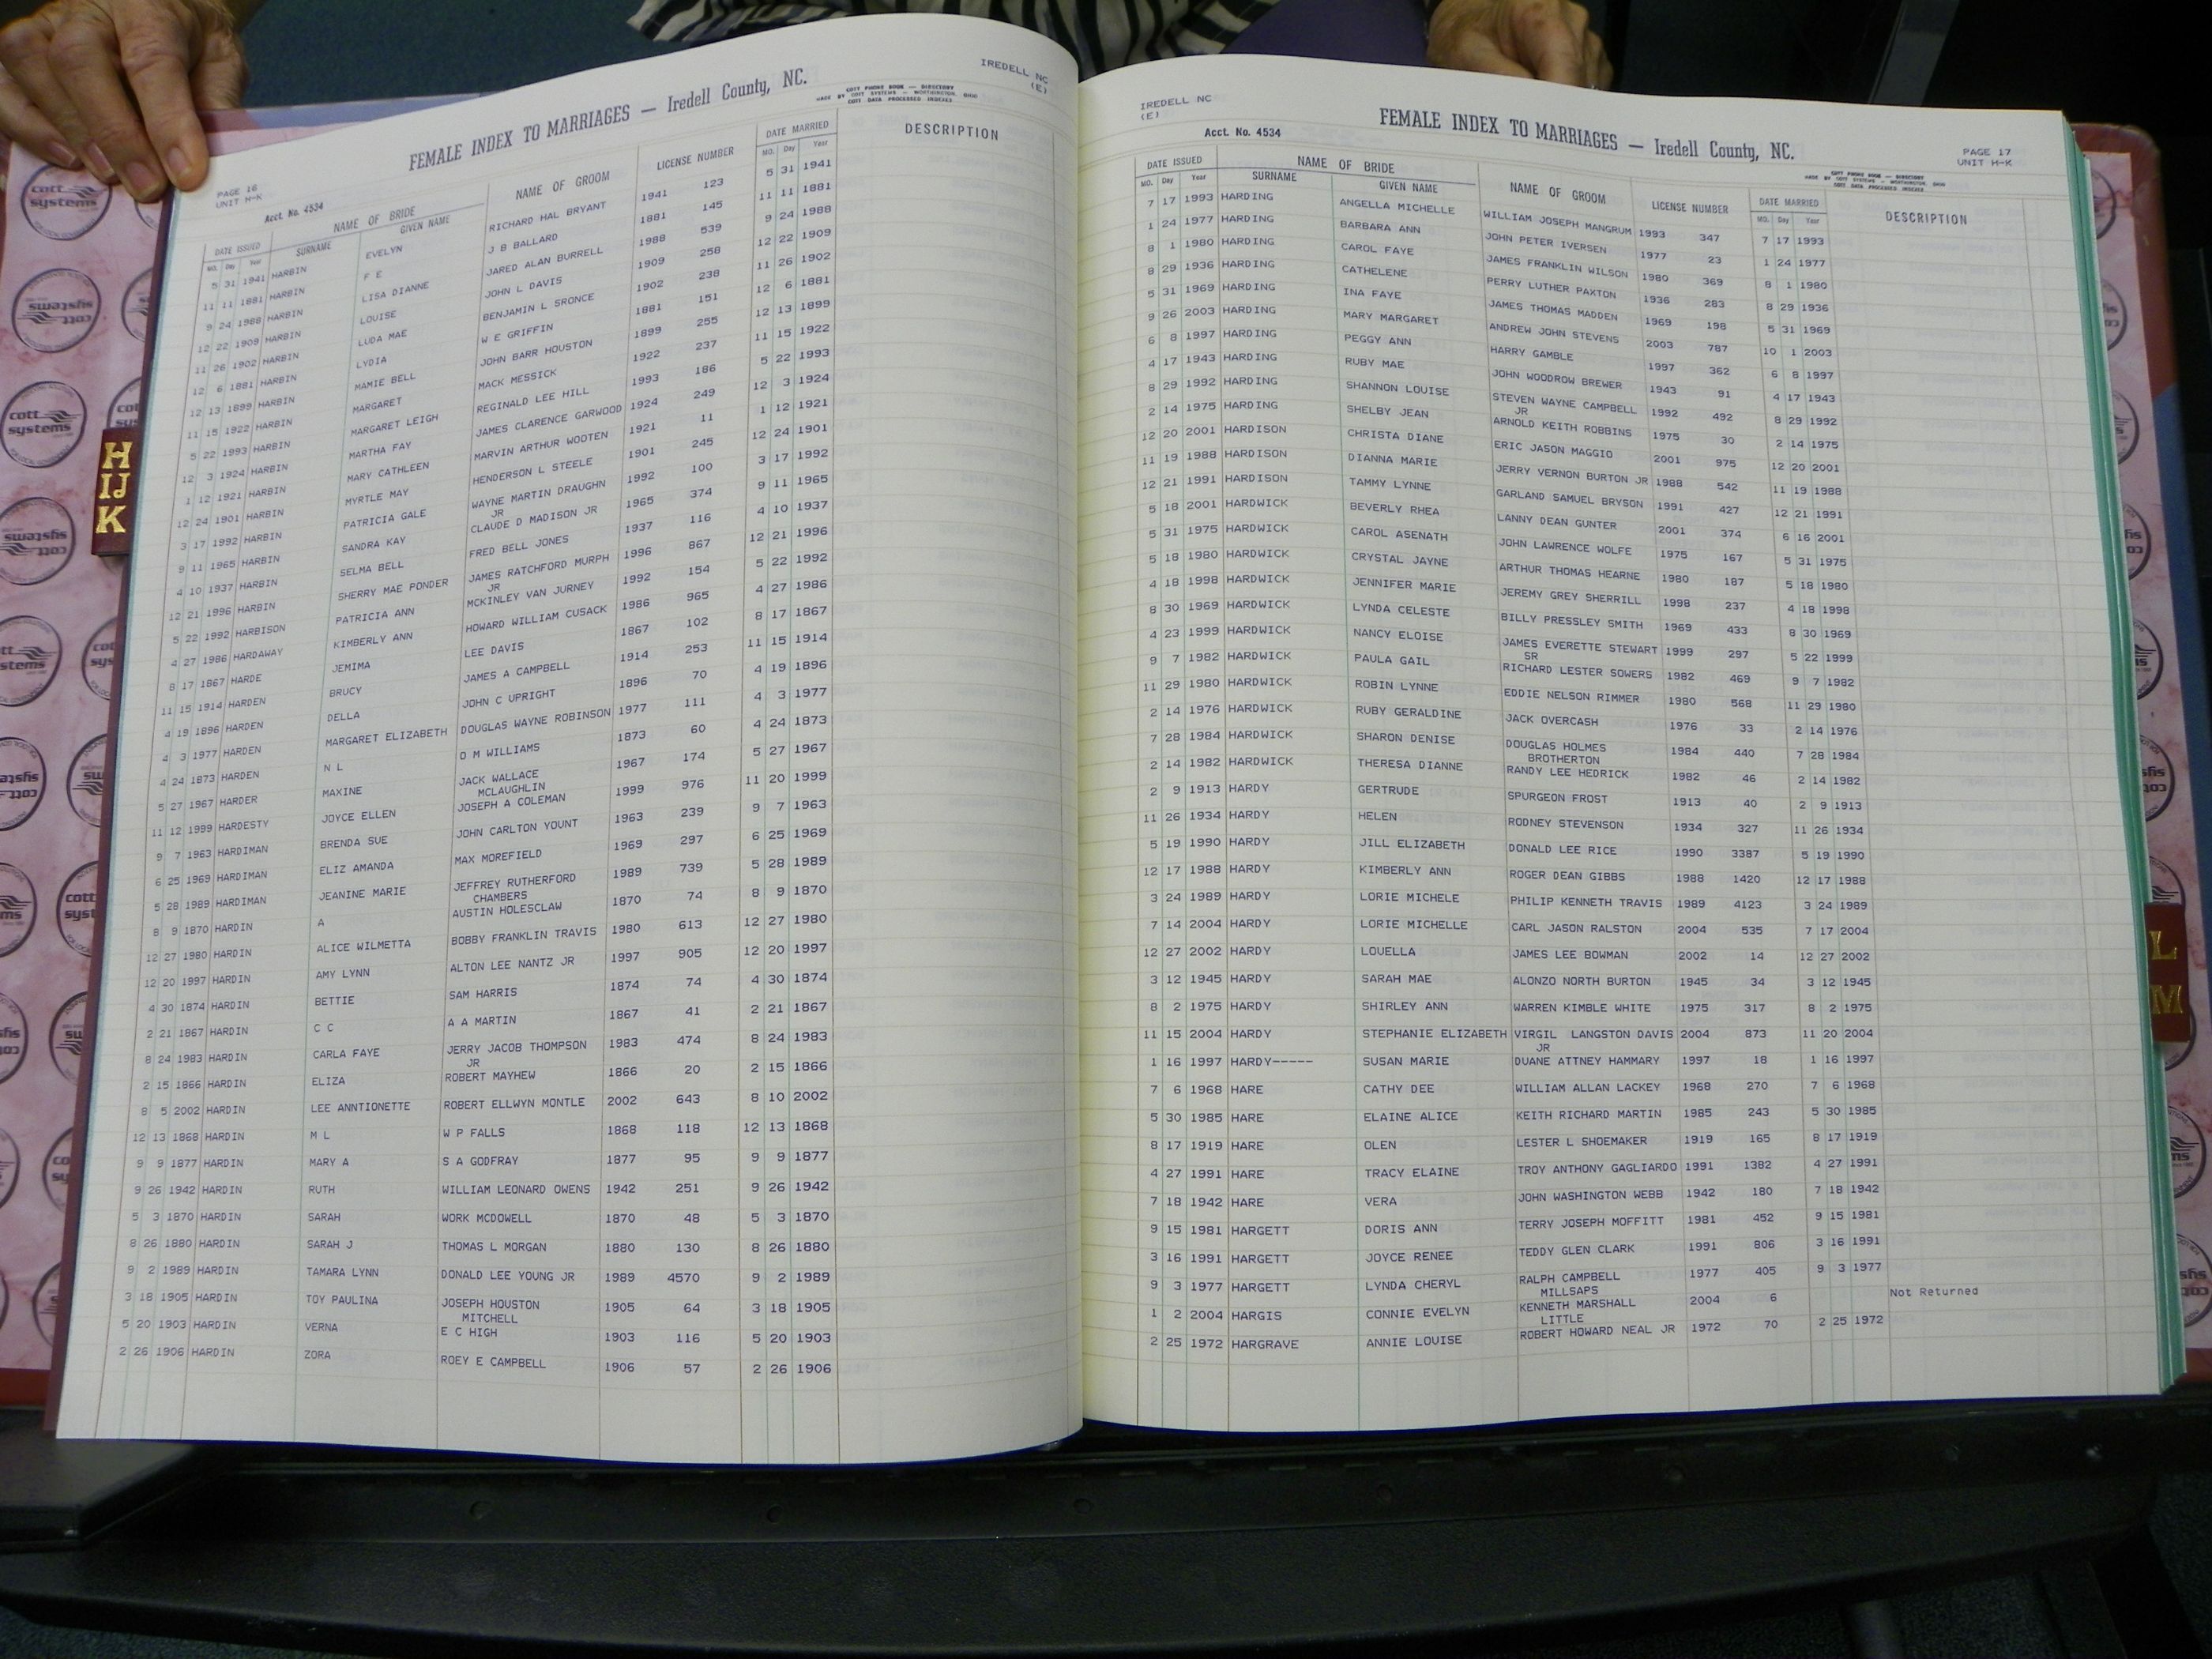 PAGE 16
UNIT H-K
Acct. No. 4534
FEMALE INDEX TO MARRIAGES — Iredell County, NC.
COTT PHONE BOOK — DIRECTORY
MADE BY COTT SYSTEMS — WORTHINGTON, OHIO
COTT DATA PROCESSED INDEXES
IREDELL NC
(E)
DATE ISSUED NAME OF BRIDE NAME OF GROOM LICENSE NUMBER DATE MARRIED DESCRIPTION
MO. Day Year SURNAME GIVEN NAME MO. Day Year
5 31 1941 HARBIN EVELYN RICHARD HAL BRYANT 1941 123 5 31 1941
11 11 1881 HARBIN F E J B BALLARD 1881 145 11 11 1881
9 24 1988 HARBIN LISA DIANNE JARED ALAN BURRELL 1988 539 9 24 1988
12 22 1909 HARBIN LOUISE JOHN L DAVIS 1909 258 12 22 1909
11 26 1902 HARBIN LUDA MAE BENJAMIN L SRONCE 1902 238 11 26 1902
12 6 1881 HARBIN LYDIA W E GRIFFIN 1881 151 12 6 1881
12 13 1899 HARBIN MAMIE BELL JOHN BARR HOUSTON 1899 255 12 13 1899
11 15 1922 HARBIN MARGARET MACK MESSICK 1922 237 11 15 1922
5 22 1993 HARBIN MARGARET LEIGH REGINALD LEE HILL 1993 186 5 22 1993
12 3 1924 HARBIN MARTHA FAY JAMES CLARENCE GARWOOD 1924 249 12 3 1924
1 12 1921 HARBIN MARY CATHLEEN MARVIN ARTHUR WOOTEN 1921 11 1 12 1921
12 24 1901 HARBIN MYRTLE MAY HENDERSON L STEELE 1901 245 12 24 1901
3 17 1992 HARBIN PATRICIA GALE WAYNE MARTIN DRAUGHN 1992 100 3 17 1992
JR
9 11 1965 HARBIN SANDRA KAY CLAUDE D MADISON JR 1965 374 9 11 1965
4 10 1937 HARBIN SELMA BELL FRED BELL JONES 1937 116 4 10 1937
12 21 1996 HARBIN SHERRY MAE PONDER JAMES RATCHFORD MURPH 1996 867 12 21 1996
JR
5 22 1992 HARBISON PATRICIA ANN MCKINLEY VAN JURNEY 1992 154 5 22 1992
4 27 1986 HARDAWAY KIMBERLY ANN HOWARD WILLIAM CUSACK 1986 965 4 27 1986
8 17 1867 HARDE JEMIMA LEE DAVIS 1867 102 8 17 1867
11 15 1914 HARDEN BRUCY JAMES A CAMPBELL 1914 253 11 15 1914
4 19 1896 HARDEN DELLA JOHN C UPRIGHT 1896 70 4 19 1896
4 3 1977 HARDEN MARGARET ELIZABETH DOUGLAS WAYNE ROBINSON 1977 111 4 3 1977
4 24 1873 HARDEN N L O M WILLIAMS 1873 60 4 24 1873
5 27 1967 HARDER MAXINE JACK WALLACE 1967 174 5 27 1967
MCLAUGHLIN
11 12 1999 HARDESTY JOYCE ELLEN JOSEPH A COLEMAN 1999 976 11 20 1999
9 7 1963 HARDIMAN BRENDA SUE JOHN CARLTON YOUNT 1963 239 9 7 1963
6 25 1969 HARDIMAN ELIZ AMANDA MAX MOREFIELD 1969 297 6 25 1969
5 28 1989 HARDIMAN JEANINE MARIE JEFFREY RUTHERFORD 1989 739 5 28 1989
CHAMBERS
8 9 1870 HARDIN A AUSTIN HOLESCLAW 1870 74 8 9 1870
12 27 1980 HARDIN ALICE WILMETTA BOBBY FRANKLIN TRAVIS 1980 613 12 27 1980
12 20 1997 HARDIN AMY LYNN ALTON LEE NANTZ JR 1997 905 12 20 1997
4 30 1874 HARDIN BETTIE SAM HARRIS 1874 74 4 30 1874
2 21 1867 HARDIN C C A A MARTIN 1867 41 2 21 1867
8 24 1983 HARDIN CARLA FAYE JERRY JACOB THOMPSON 1983 474 8 24 1983
JR
2 15 1866 HARDIN ELIZA ROBERT MAYHEW 1866 20 2 15 1866
8 5 2002 HARDIN LEE ANNTIONETTE ROBERT ELLWYN MONTLE 2002 643 8 10 2002
12 13 1868 HARDIN M L W P FALLS 1868 118 12 13 1868
9 9 1877 HARDIN MARY A S A GODFRAY 1877 95 9 9 1877
9 26 1942 HARDIN RUTH WILLIAM LEONARD OWENS 1942 251 9 26 1942
5 3 1870 HARDIN SARAH WORK MCDOWELL 1870 48 5 3 1870
8 26 1880 HARDIN SARAH J THOMAS L MORGAN 1880 130 8 26 1880
9 2 1989 HARDIN TAMARA LYNN DONALD LEE YOUNG JR 1989 4570 9 2 1989
3 18 1905 HARDIN TOY PAULINA JOSEPH HOUSTON 1905 64 3 18 1905
MITCHELL
5 20 1903 HARDIN VERNA E C HIGH 1903 116 5 20 1903
2 26 1906 HARDIN ZORA ROEY E CAMPBELL 1906 57 2 26 1906
IREDELL NC
(E)
Acct. No. 4534
FEMALE INDEX TO MARRIAGES — Iredell County, NC.
PAGE 17
UNIT H-K
COTT PHONE BOOK — DIRECTORY
MADE BY COTT SYSTEMS — WORTHINGTON, OHIO
COTT DATA PROCESSED INDEXES
DATE ISSUED NAME OF BRIDE NAME OF GROOM LICENSE NUMBER DATE MARRIED DESCRIPTION
MO. Day Year SURNAME GIVEN NAME MO. Day Year
7 17 1993 HARDING ANGELLA MICHELLE WILLIAM JOSEPH MANGRUM 1993 347 7 17 1993
1 24 1977 HARDING BARBARA ANN JOHN PETER IVERSEN 1977 23 1 24 1977
8 1 1980 HARDING CAROL FAYE JAMES FRANKLIN WILSON 1980 369 8 1 1980
8 29 1936 HARDING CATHELENE PERRY LUTHER PAXTON 1936 283 8 29 1936
5 31 1969 HARDING INA FAYE JAMES THOMAS MADDEN 1969 198 5 31 1969
9 26 2003 HARDING MARY MARGARET ANDREW JOHN STEVENS 2003 787 10 1 2003
6 8 1997 HARDING PEGGY ANN HARRY GAMBLE 1997 362 6 8 1997
4 17 1943 HARDING RUBY MAE JOHN WOODROW BREWER 1943 91 4 17 1943
8 29 1992 HARDING SHANNON LOUISE STEVEN WAYNE CAMPBELL 1992 492 8 29 1992
JR
2 14 1975 HARDING SHELBY JEAN ARNOLD KEITH ROBBINS 1975 30 2 14 1975
12 20 2001 HARDISON CHRISTA DIANE ERIC JASON MAGGIO 2001 975 12 20 2001
11 19 1988 HARDISON DIANNA MARIE JERRY VERNON BURTON JR 1988 542 11 19 1988
12 21 1991 HARDISON TAMMY LYNNE GARLAND SAMUEL BRYSON 1991 427 12 21 1991
5 18 2001 HARDWICK BEVERLY RHEA LANNY DEAN GUNTER 2001 374 6 16 2001
5 31 1975 HARDWICK CAROL ASENATH JOHN LAWRENCE WOLFE 1975 167 5 31 1975
5 18 1980 HARDWICK CRYSTAL JAYNE ARTHUR THOMAS HEARNE 1980 187 5 18 1980
4 18 1998 HARDWICK JENNIFER MARIE JEREMY GREY SHERRILL 1998 237 4 18 1998
8 30 1969 HARDWICK LYNDA CELESTE BILLY PRESSLEY SMITH 1969 433 8 30 1969
4 23 1999 HARDWICK NANCY ELOISE JAMES EVERETTE STEWART 1999 297 5 22 1999
SR
9 7 1982 HARDWICK PAULA GAIL RICHARD LESTER SOWERS 1982 469 9 7 1982
11 29 1980 HARDWICK ROBIN LYNNE EDDIE NELSON RIMMER 1980 568 11 29 1980
2 14 1976 HARDWICK RUBY GERALDINE JACK OVERCASH 1976 33 2 14 1976
7 28 1984 HARDWICK SHARON DENISE DOUGLAS HOLMES 1984 440 7 28 1984
BROTHERTON
2 14 1982 HARDWICK THERESA DIANNE RANDY LEE HEDRICK 1982 46 2 14 1982
2 9 1913 HARDY GERTRUDE SPURGEON FROST 1913 40 2 9 1913
11 26 1934 HARDY HELEN RODNEY STEVENSON 1934 327 11 26 1934
5 19 1990 HARDY JILL ELIZABETH DONALD LEE RICE 1990 3387 5 19 1990
12 17 1988 HARDY KIMBERLY ANN ROGER DEAN GIBBS 1988 1420 12 17 1988
3 24 1989 HARDY LORIE MICHELE PHILIP KENNETH TRAVIS 1989 4123 3 24 1989
7 14 2004 HARDY LORIE MICHELLE CARL JASON RALSTON 2004 535 7 17 2004
12 27 2002 HARDY LOUELLA JAMES LEE BOWMAN 2002 14 12 27 2002
3 12 1945 HARDY SARAH MAE ALONZO NORTH BURTON 1945 34 3 12 1945
8 2 1975 HARDY SHIRLEY ANN WARREN KIMBLE WHITE 1975 317 8 2 1975
11 15 2004 HARDY STEPHANIE ELIZABETH VIRGIL LANGSTON DAVIS 2004 873 11 20 2004
JR
1 16 1997 HARDY----- SUSAN MARIE DUANE ATTNEY HAMMARY 1997 18 1 16 1997
7 6 1968 HARE CATHY DEE WILLIAM ALLAN LACKEY 1968 270 7 6 1968
5 30 1985 HARE ELAINE ALICE KEITH RICHARD MARTIN 1985 243 5 30 1985
8 17 1919 HARE OLEN LESTER L SHOEMAKER 1919 165 8 17 1919
4 27 1991 HARE TRACY ELAINE TROY ANTHONY GAGLIARDO 1991 1382 4 27 1991
7 18 1942 HARE VERA JOHN WASHINGTON WEBB 1942 180 7 18 1942
9 15 1981 HARGETT DORIS ANN TERRY JOSEPH MOFFITT 1981 452 9 15 1981
3 16 1991 HARGETT JOYCE RENEE TEDDY GLEN CLARK 1991 806 3 16 1991
9 3 1977 HARGETT LYNDA CHERYL RALPH CAMPBELL 1977 405 9 3 1977
MILLSAPS
1 2 2004 HARGIS CONNIE EVELYN KENNETH MARSHALL 2004 6 Not Returned
LITTLE
2 25 1972 HARGRAVE ANNIE LOUISE ROBERT HOWARD NEAL JR 1972 70 2 25 1972
H
IJ
K
L
M
cott
systems